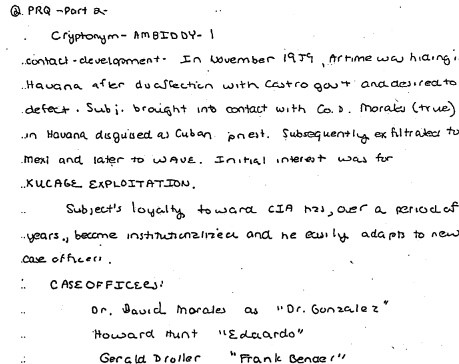 @ PRQ - Part 2-
Cryptonym - AMBIDDY-1
contact - development - In November 1959, Artime was hiding i
Havana after disaffection with Castro gov't and desired to
defect. Subj. brought into contact with Co. D. Morales (true)
in Havana disguised as Cuban priest. Subsequently exfiltrated to
Mexi and later to WAVE. Initial interest was for
KUCAGE EXPLOITATION.
Subject's loyalty toward CIA has, over a period of
years, become institutionalized and he easily adapts to new
case officers.
CASE OFFICERS:
Dr. David Morales as "Dr. Gonzalez"
Howard Hunt "Eduardo"
Gerald Droller "Frank Bender"